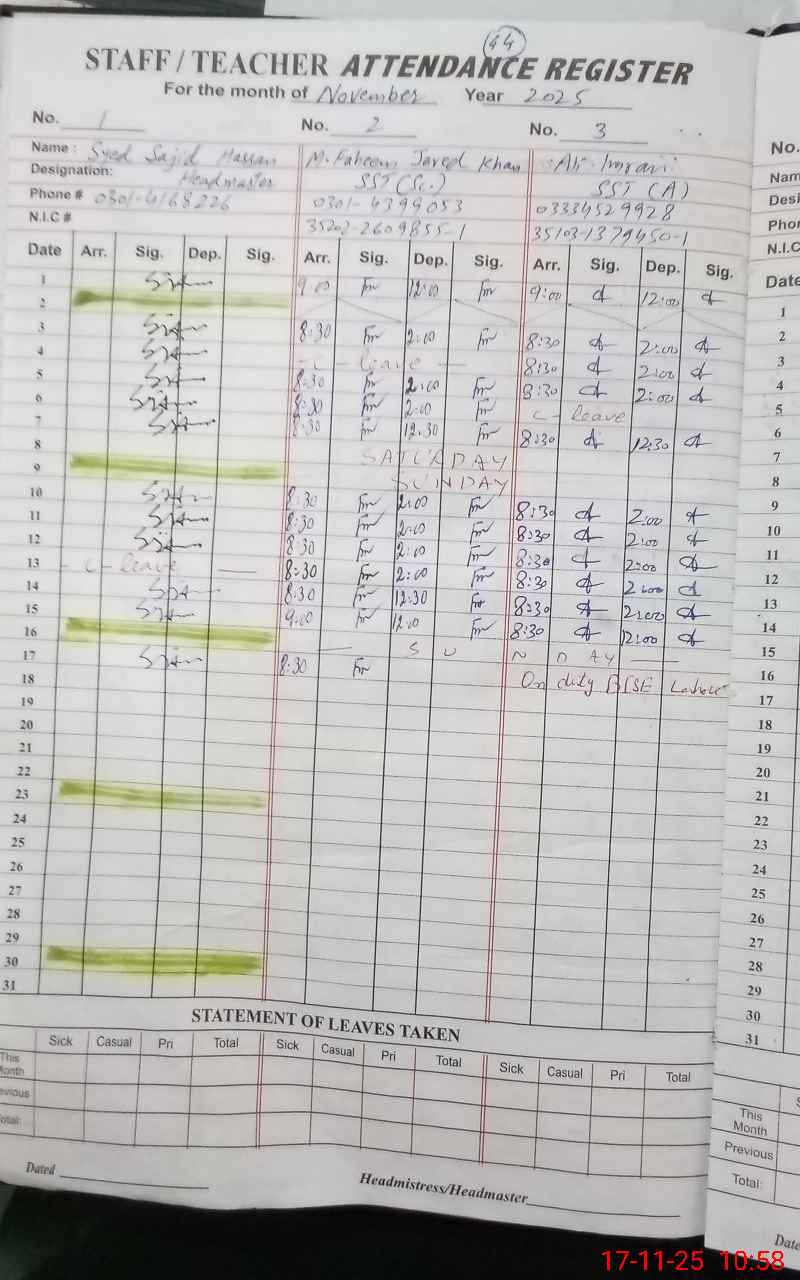 44
STAFF / TEACHER ATTENDANCE REGISTER
For the month of November Year 2025
No. 1 No. 2 No. 3
Name : Syed Sajid Hassan M. Faheem Javed Khan Ali Imran
Designation: Headmaster SST (Sc.) SST (A)
Phone # 0301-4168226 0301-4399053 03334529928
N.I.C # 35202-2609855-1 35103-1379450-1
Date Arr. Sig. Dep. Sig. Arr. Sig. Dep. Sig. Arr. Sig. Dep. Sig.
1 9:00 12:00 9:00 12:00
2
3 8:30 2:00 8:30 2:00
4 - C - leave - 8:30 2:00
5 8:30 2:00 8:30 2:00
6 8:30 2:00 C - leave
7 8:30 12:30 8:30 12:30
8 SATURDAY
9 SUNDAY
10 8:30 2:00 8:30 2:00
11 8:30 2:00 8:30 2:00
12 8:30 2:00 8:30 2:00
13 - C - leave - 8:30 2:00 8:30 2:00
14 8:30 12:30 8:30 2:00
15 9:00 12:00 8:30 12:00
16 SUNDAY
17 8:30 On duty BISE Lahore
18
19
20
21
22
23
24
25
26
27
28
29
30
31
STATEMENT OF LEAVES TAKEN
Sick Casual Pri Total Sick Casual Pri Total Sick Casual Pri Total
This
Month
Previous
Total:
Dated Headmistress/Headmaster
No.
Nam
Desi
Phor
N.I.C
Date
1
2
3
4
5
6
7
8
9
10
11
12
13
14
15
16
17
18
19
20
21
22
23
24
25
26
27
28
29
30
31
This
Month
Previous
Total:
Date
17-11-25 10:58